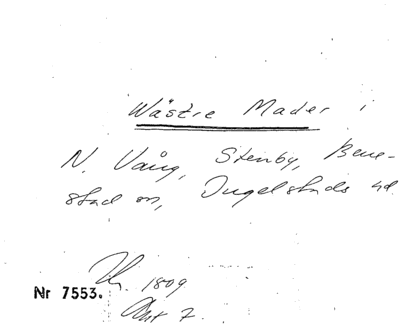 Wästre Mader i
N. Vång, Stenby, Bene-
stad sn, Ingelstads hd.
1809
Nr 7553.
Akt 7.